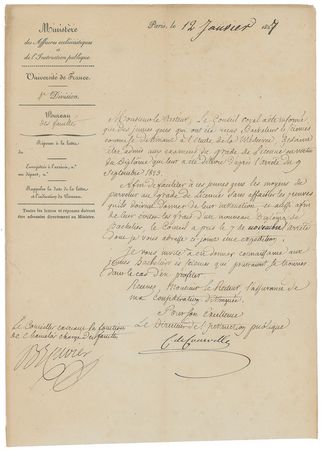 Ministère
des Affaires ecclésiastiques
et
de l'Instruction publique.
Université de France.
Division.
Bureau
des facultés
Réponse à la lettre
du
Enregistrée à l'arrivée, n°
au départ, n°
Rappeler la date de la lettre,
et l'indication du Bureau.
Toutes les lettres et réponses doivent
être adressées directement au Ministre.
Paris, le 12 Janvier
Monsieur le Recteur, Le Conseil royal a été informé
que des jeunes gens qui ont été reçus Bacheliers ès Sciences
à l'étude de la Médecine, désirent
être admis aux examens du grade de Licencié en vertu
du Diplôme qui leur a été délivré d'après l'arrêté du 9
Septembre 1823.
Afin de faciliter à ces jeunes gens les moyens de
parvenir au grade de Licencié sans affaiblir les preuves
qu'ils doivent donner de leur instruction, et afin
de leur éviter les frais d'un nouveau Diplôme de
Bachelier, le Conseil a pris le 7 de novembre l'arrêté
dont je vous adresse ci-joint une expédition.
Je vous invite à en donner connaissance aux
jeunes Bacheliers ès Sciences qui pourraient se trouver
dans le cas d'en profiter.
Recevez, Monsieur le Recteur, l'assurance de
ma considération distinguée.
Pour son Excellence
Le Directeur de l'Instruction publique
Le Conseiller exerçant les fonctions
de Chancelier chargé des facultés
Cuvier